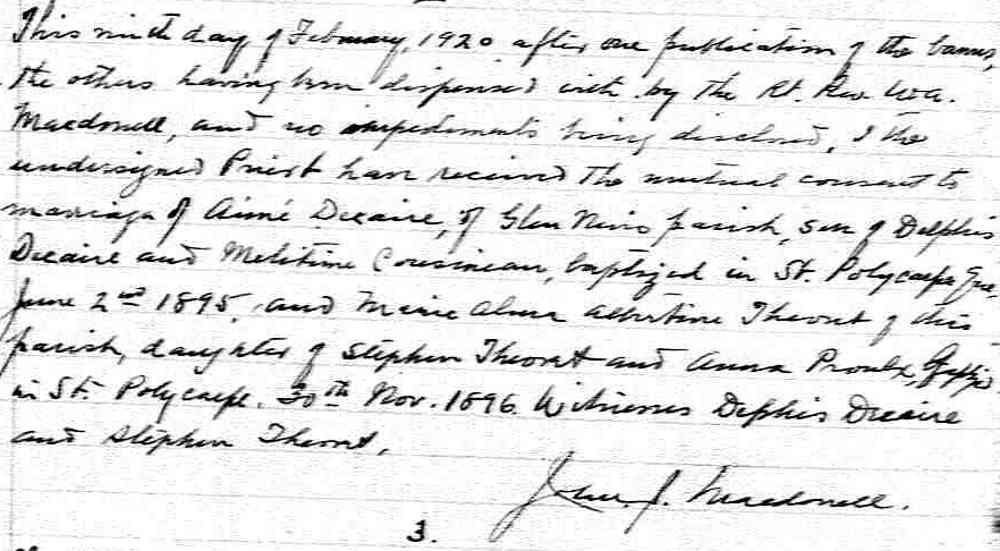 This ninth day of February, 1920 after one publication of the banns,
the others having been dispensed with by the Rt. Rev. W.A.
Macdonell, and no impediments being disclosed, I the
undersigned Priest have received the mutual consent to
marriage of Aimé Decaire, of Glen Nevis parish, son of Delphis
Decaire and Melitime Cousineau, baptized in St. Polycarpe Que.
June 2nd 1895, and Marie Alma Albertine Theoret of this
parish, daughter of Stephen Theoret and Anna Proulx, baptized
in St. Polycarpe. 30th Nov. 1896. Witnesses Delphis Decaire
and Stephen Theoret.
J. Macdonell.
3.